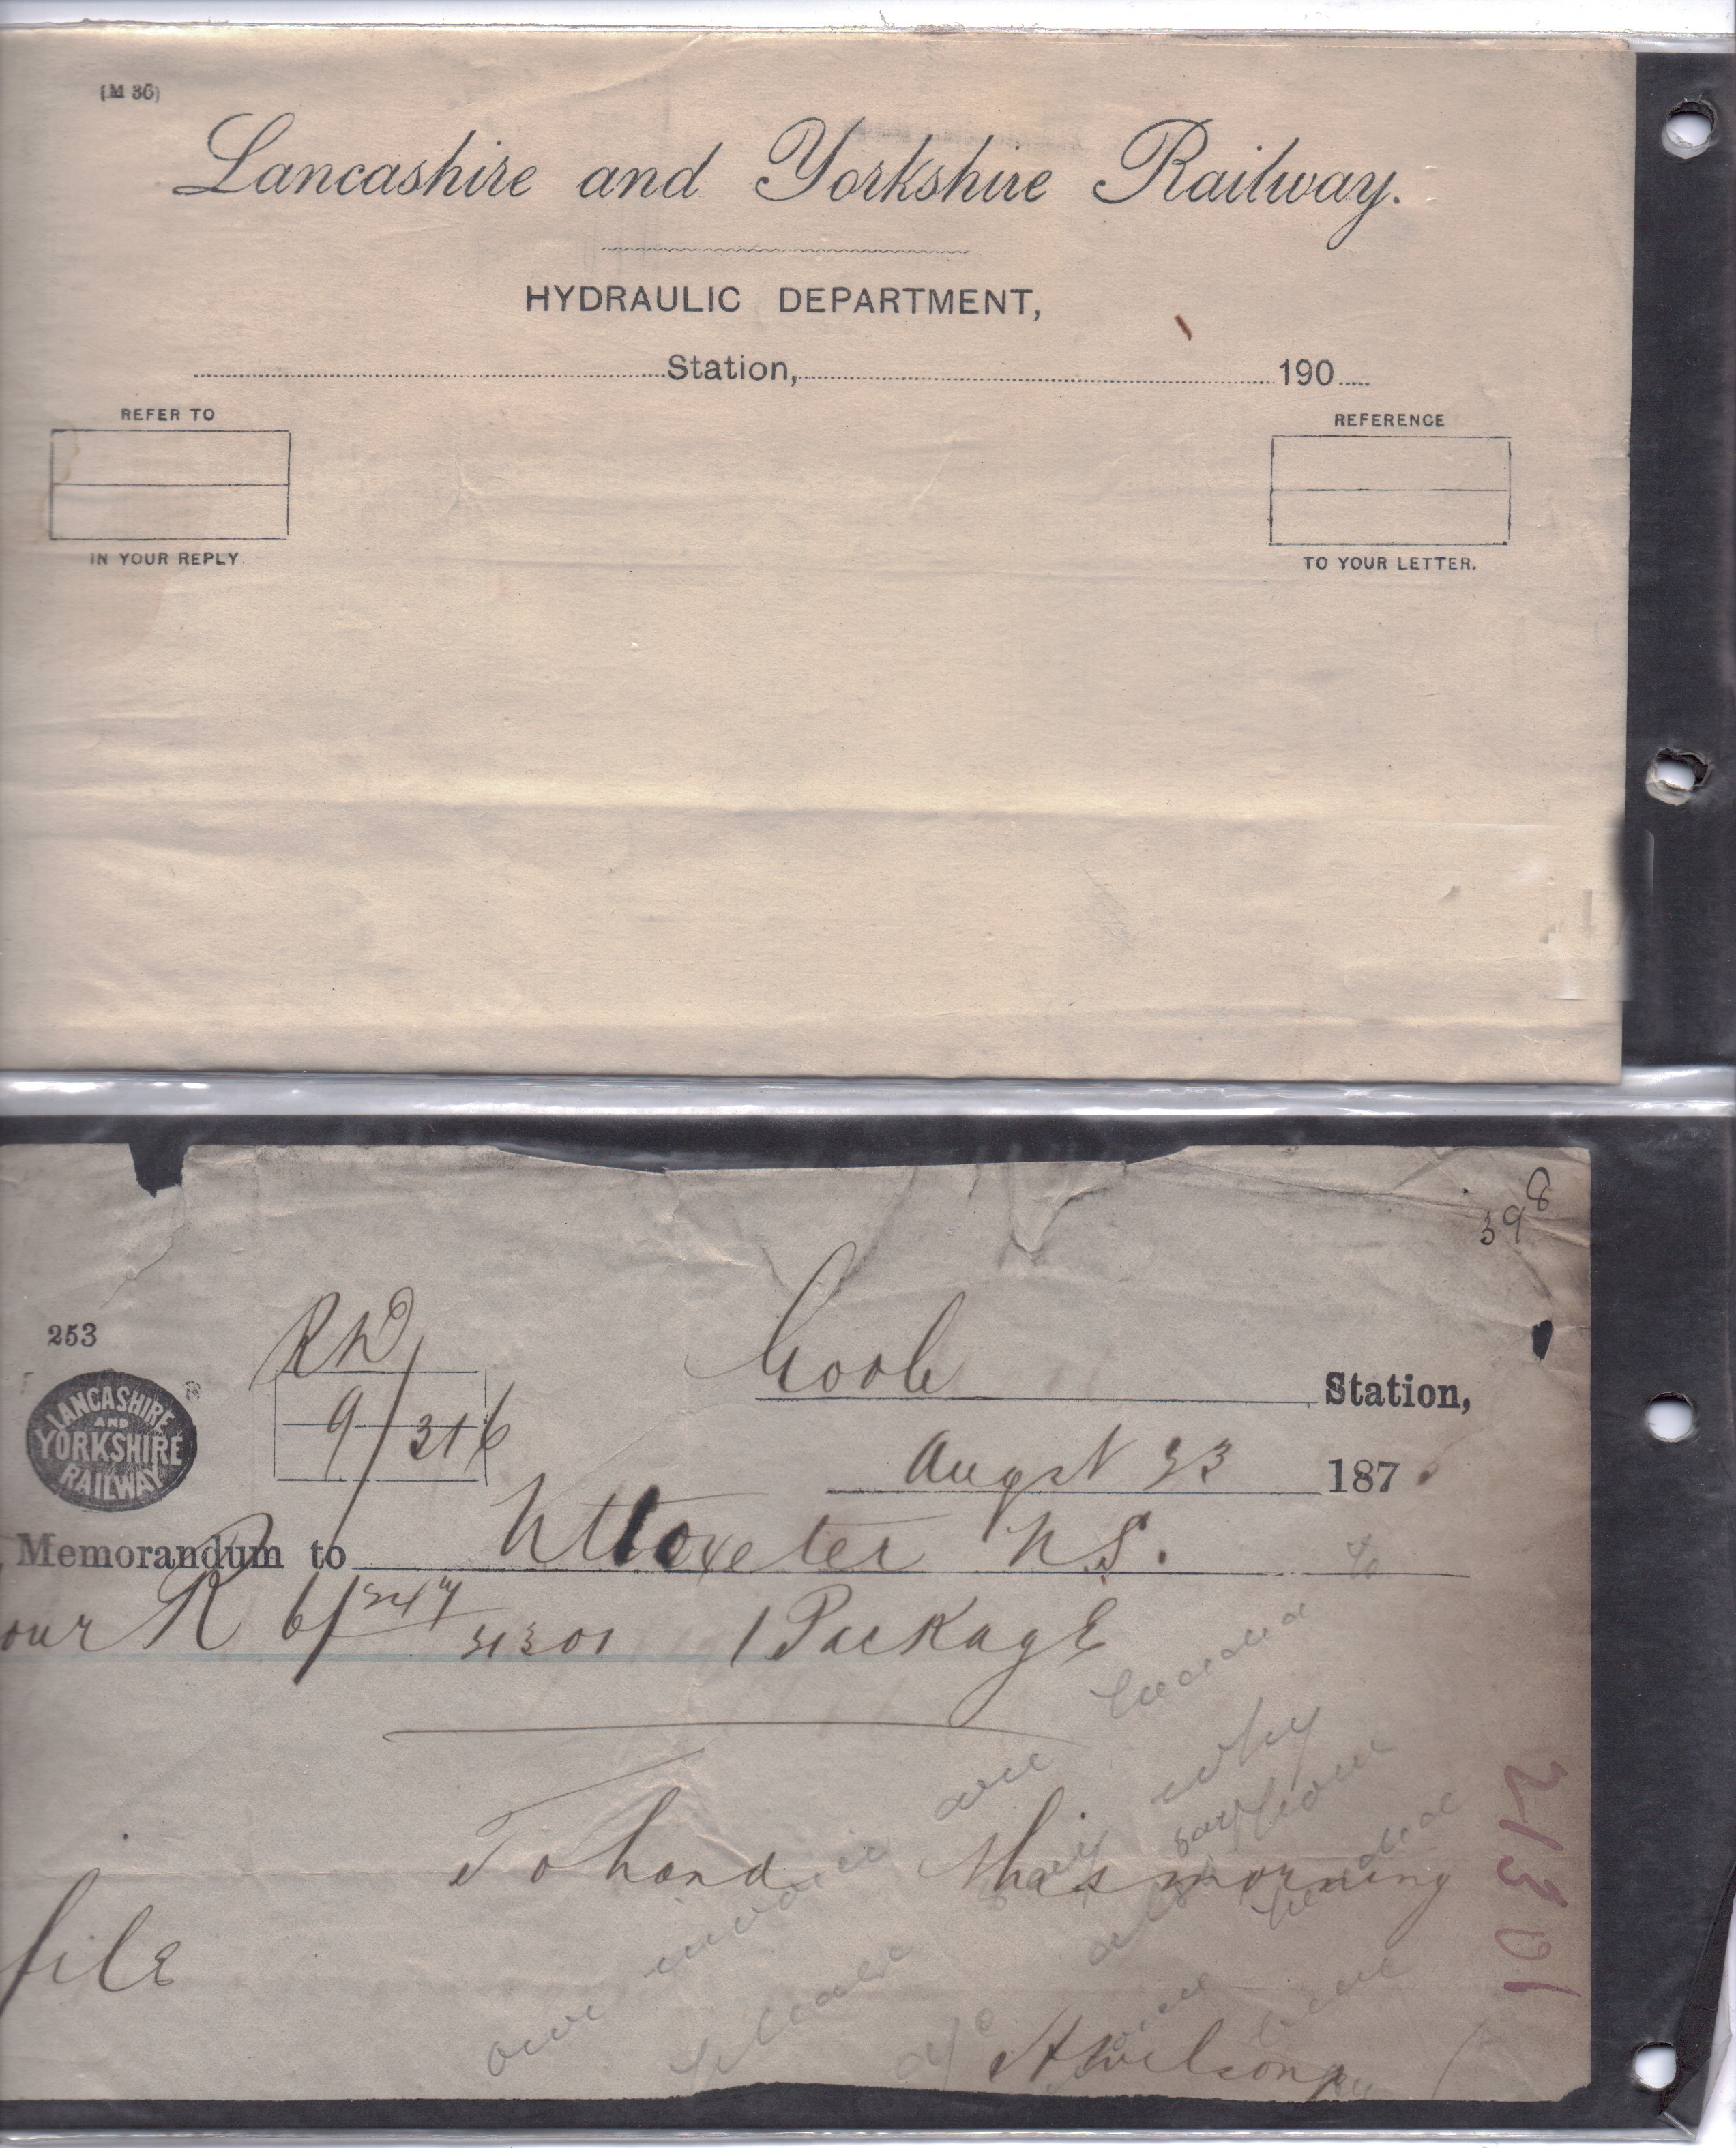 (M 36)
Lancashire and Yorkshire Railway.
HYDRAULIC DEPARTMENT,
Station, 190
REFER TO
IN YOUR REPLY.
REFERENCE
TO YOUR LETTER.
398
253
LANCASHIRE
AND
YORKSHIRE
RAILWAY
RD
9/316
Goole Station,
Augst 23 187
Memorandum to Uttoxeter N.S.
our R 6/347 21301 1 Package
To hand this morning
file
our invoice
please say why
21301
A Wilson